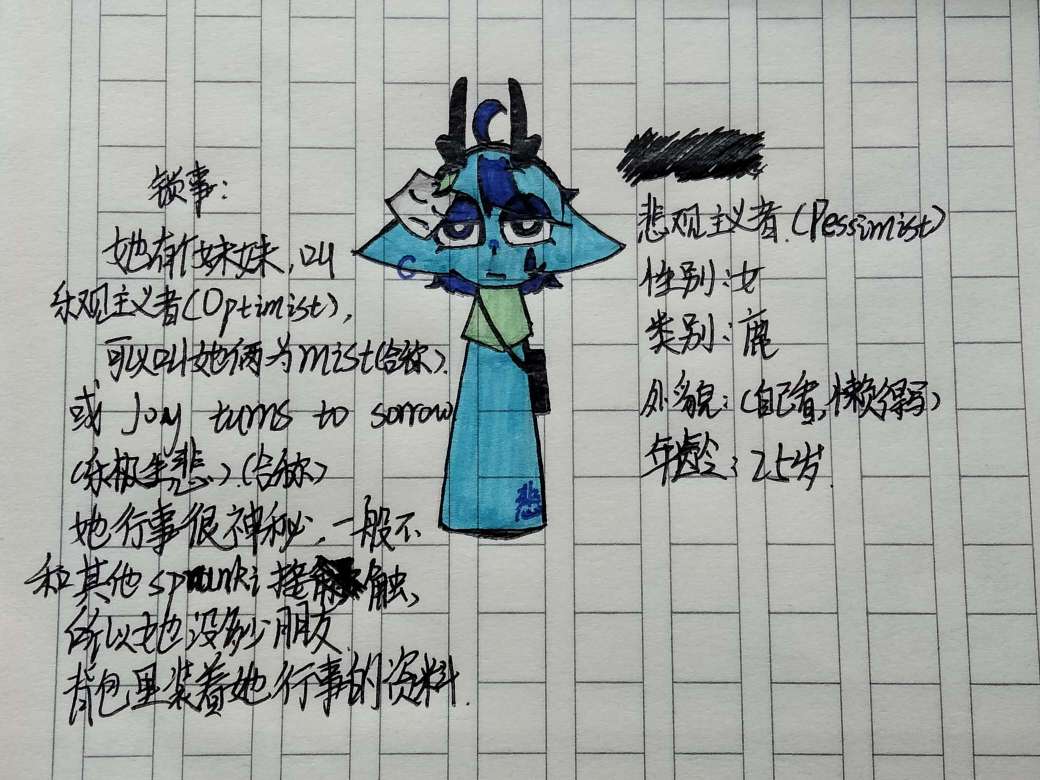 锁事:
她有个妹妹,叫
乐观主义者(Optimist),
可以叫她俩为mist(合称).
或 Joy turns to sorrow
(乐极生悲).(合称)
她行事很神秘,一般不
和其他sprunki接触,
所以她没多少朋友.
背包里装着她行事的资料.
悲观主义者.(Pessimist)
性别:女
类别:鹿
外貌:(自己看,懒得写)
年龄:25岁.
悲